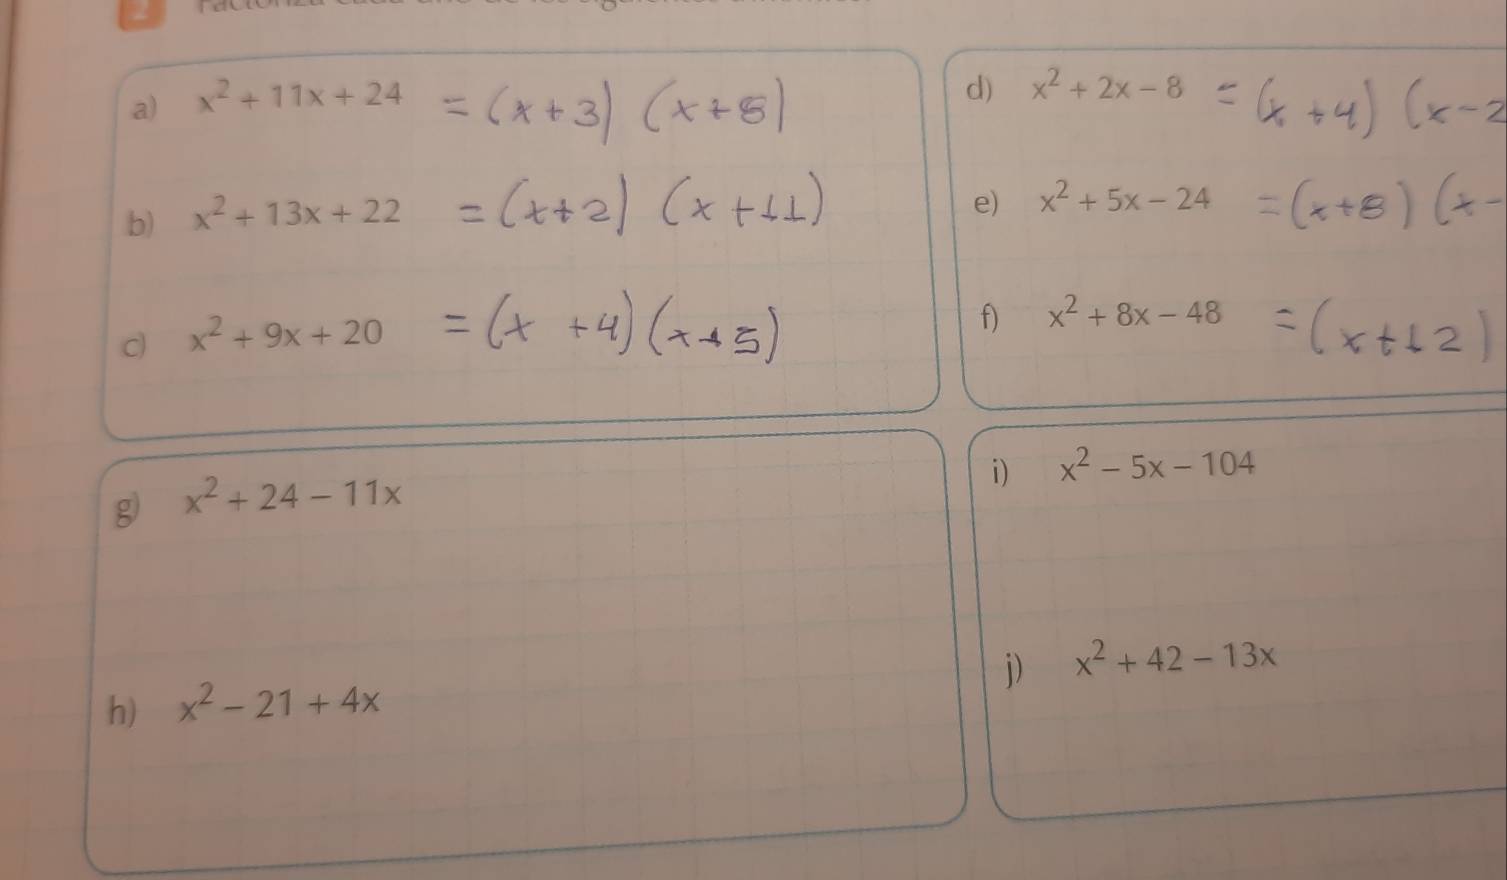 2
a) x² + 11x + 24 = (x + 3) (x + 8)
b) x² + 13x + 22 = (x + 2) (x + 11)
c) x² + 9x + 20 = (x + 4) (x + 5)
d) x² + 2x - 8 = (x + 4) (x - 2
e) x² + 5x - 24 = (x + 8) (x -
f) x² + 8x - 48 = (x + 12)
g) x² + 24 - 11x
h) x² - 21 + 4x
i) x² - 5x - 104
j) x² + 42 - 13x